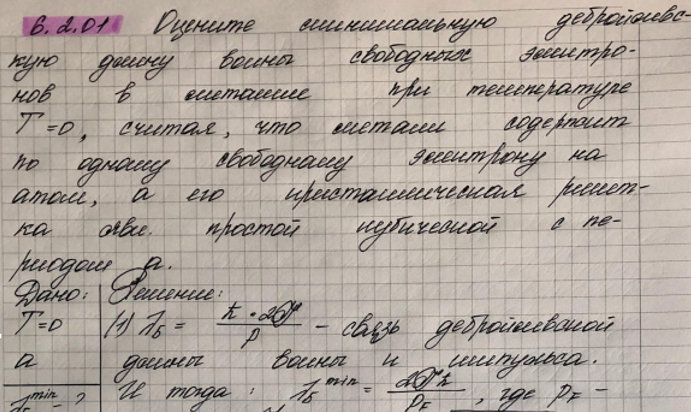 6.2.01 Оцените минимальную дебройлевс-
кую длину волны свободных электро-
нов в металле при температуре
T=0, считая, что металл содержит
по одному свободному электрону на
атом, а его кристаллическая решет-
ка явл. простой кубической с пе-
риодом a.
Дано: Решение:
T=0 (1) λ_Б = ħ·2π/p - связь дебройлевской
a длины волны и импульса.
λ_Б^min - ? И тогда: λ_Б^min = 2πħ/p_F, где p_F -